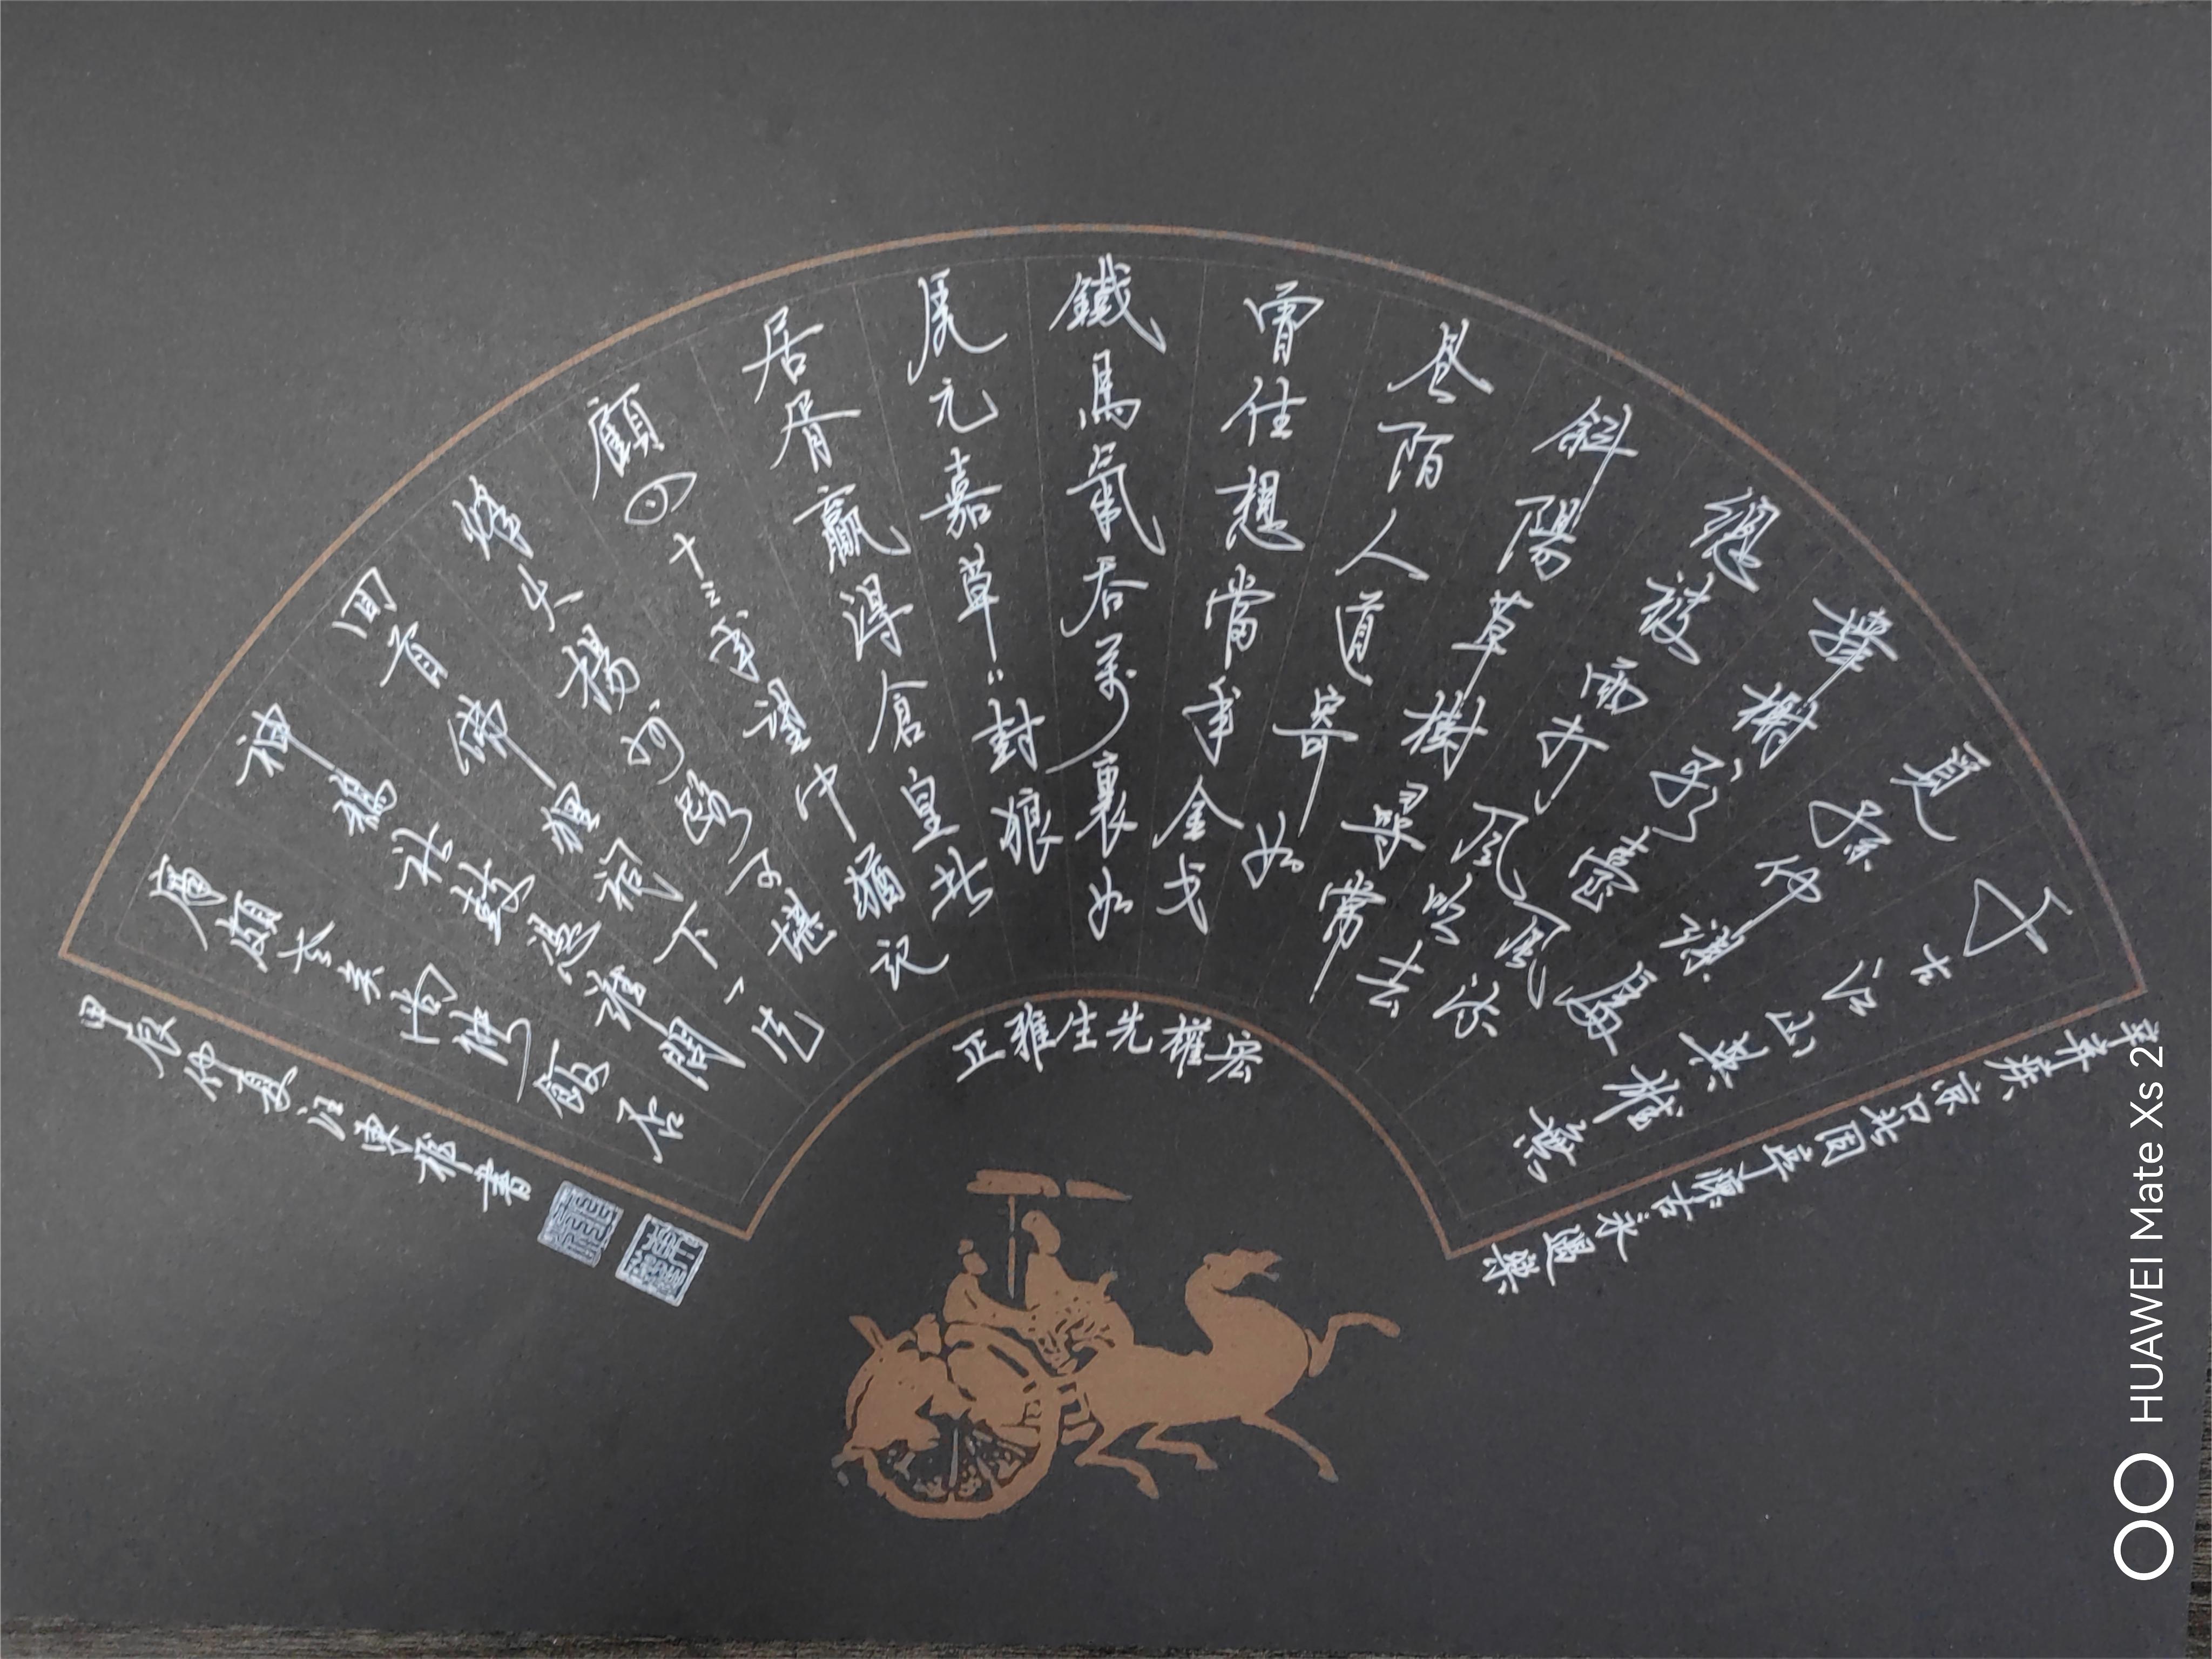 辛弃疾京口北固亭懷古永遇樂
千古江山英雄無
覓孫仲謀處舞
榭歌臺風流
總被雨打風吹去
斜陽草樹尋常
巷陌人道寄奴
曾住想當年金戈
鐵馬氣吞萬裏如
虎元嘉草〻封狼
居胥贏得倉皇北
顧四十三年望中猶記
烽火揚州路可堪
回首佛狸祠下一片
神鴉社鼓憑誰問
廉頗老矣尚能飯否
甲辰仲夏書
宏權先生雅正
HUAWEI Mate Xs 2